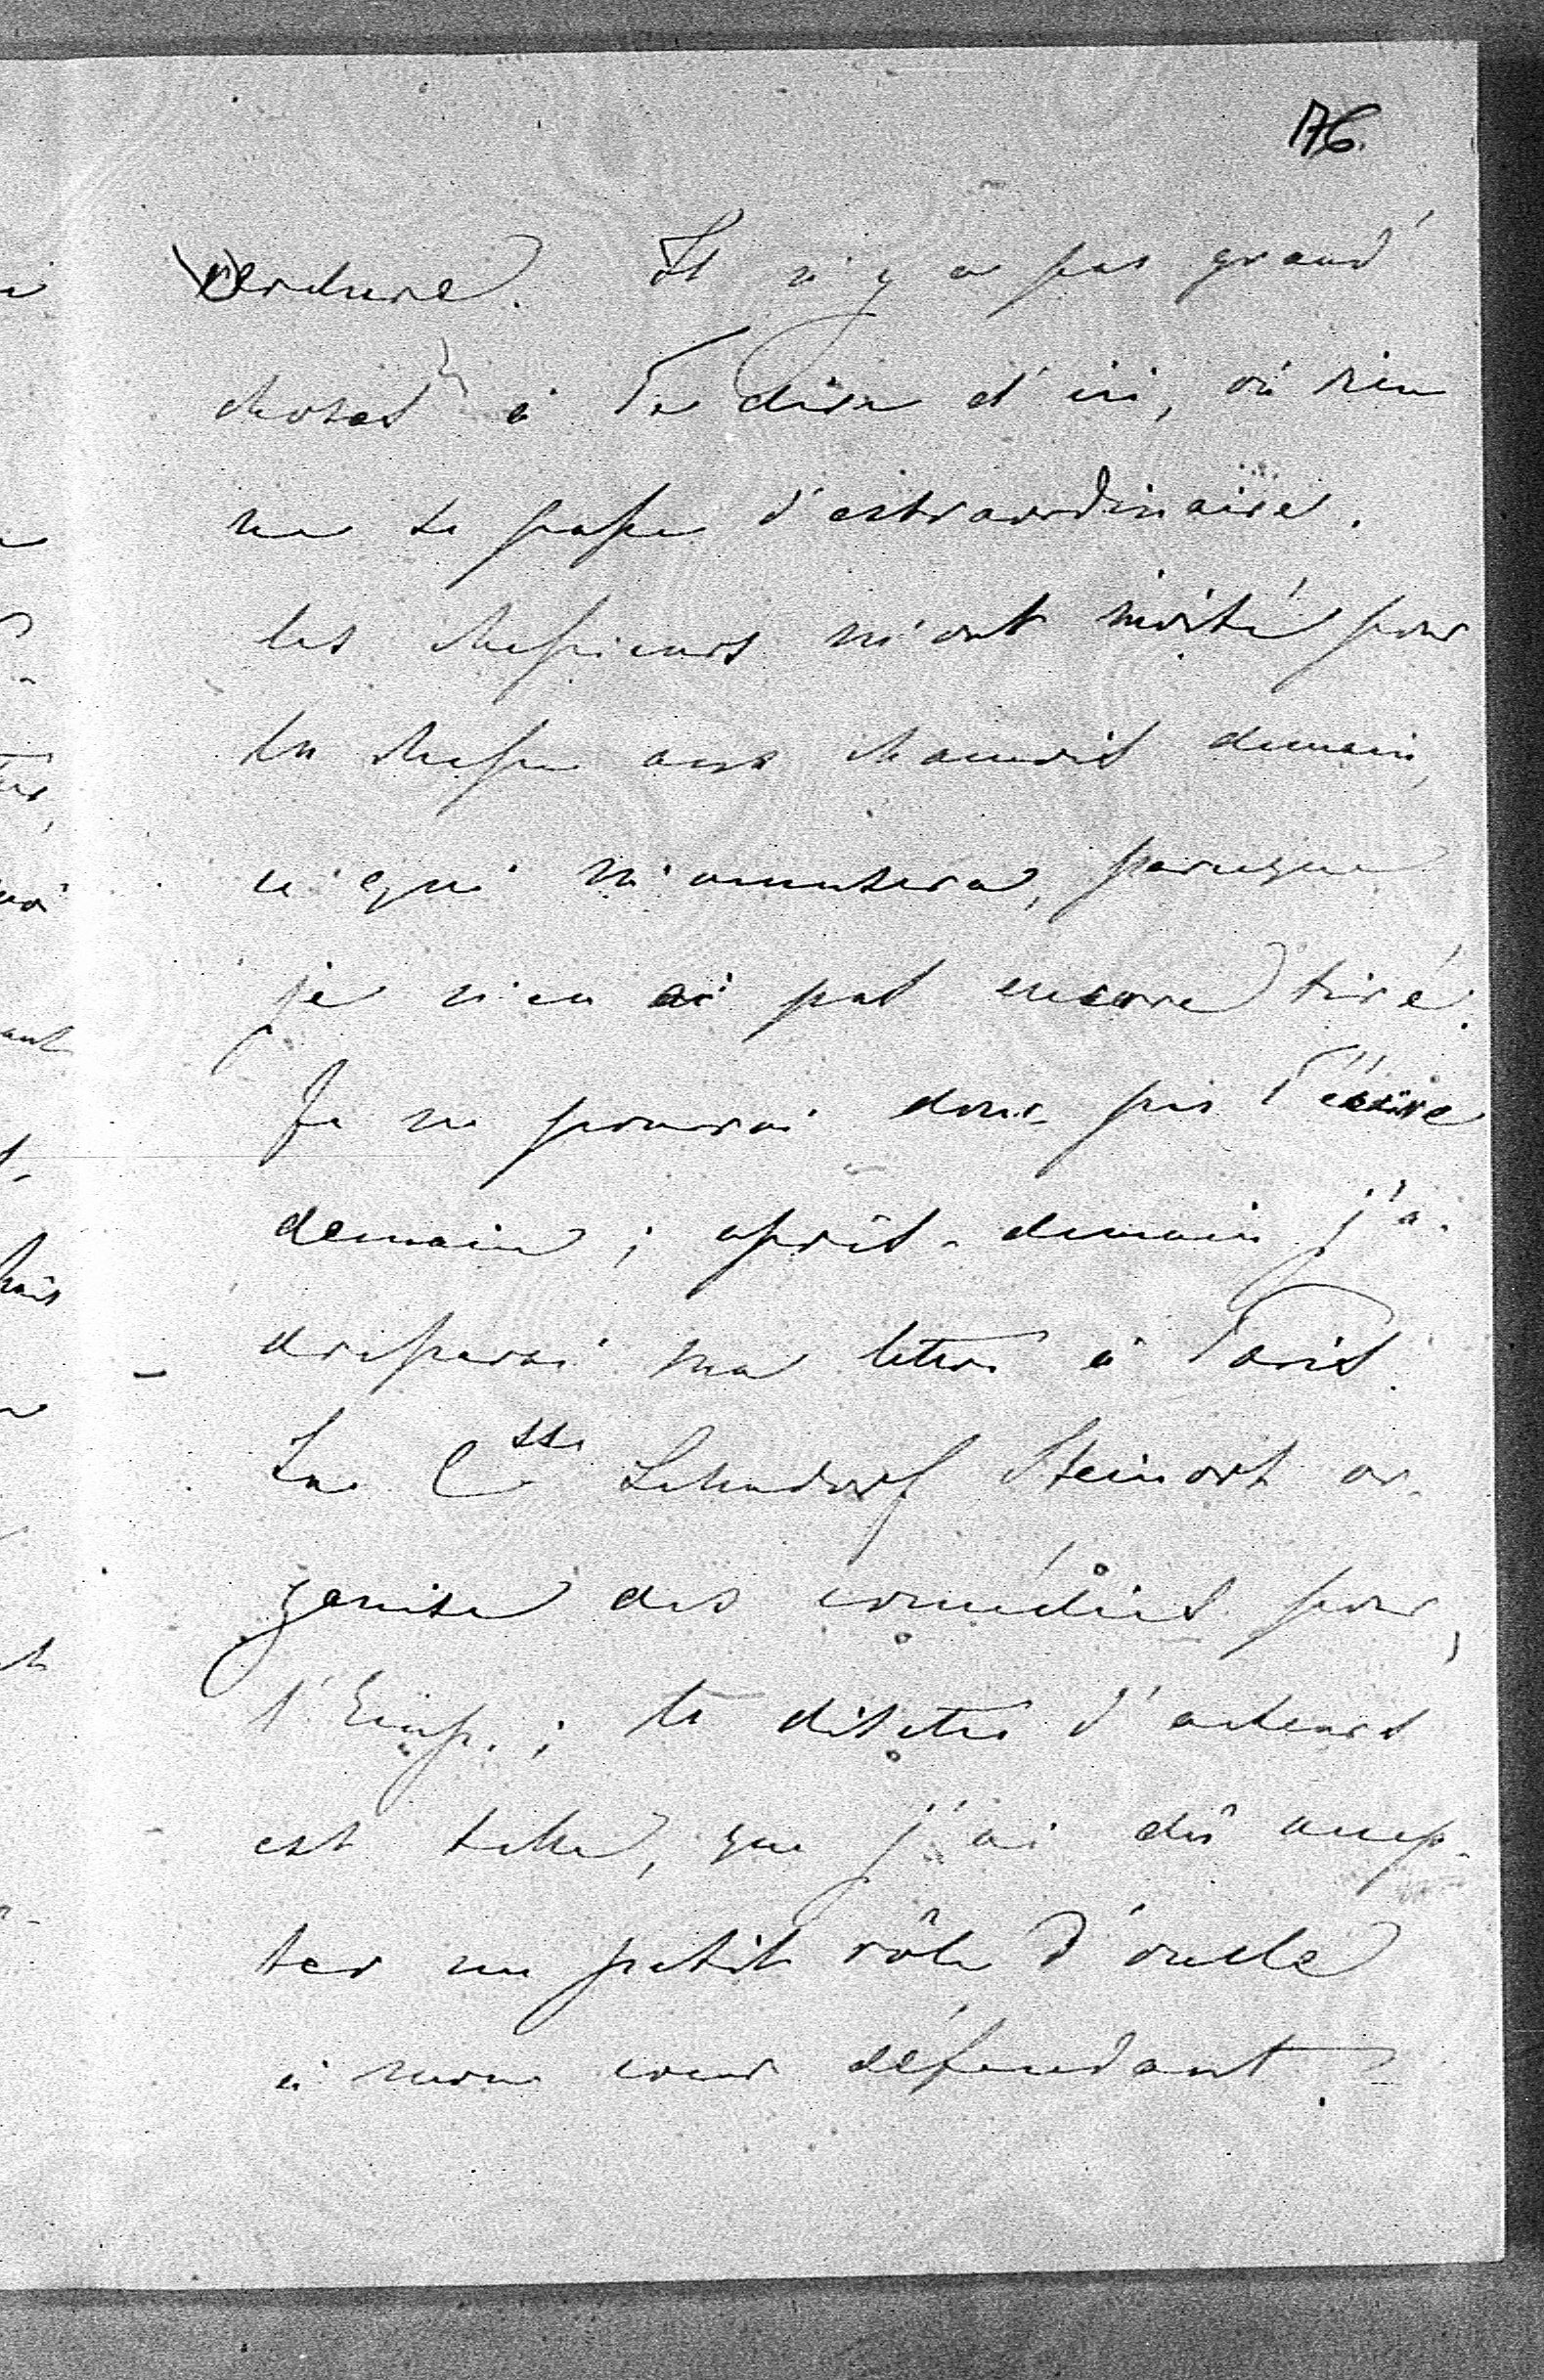 176.
verdure. Il n'y a pas grand'
chose à Te dire d'ici, où rien
ne se passe d'extraordinaire.
Les chasseurs m'ont invité pour
la chasse aux chamois demain,
ce qui m'amusera, parceque
je n'en ai pas encore tiré.
Je ne pourrai donc pas T'écrire
demain; après-demain j'a-
dresserai ma lettre à Paris.
La Csse Lehndorf Steinort or-
ganise des comédies pour
l'Emp.; la disette d'acteurs
est telle, que j'ai dû accep-
ter un petit rôle d'oncle
à mon corps défendant.